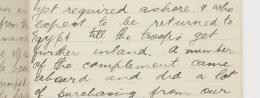 ypt required ashore & who
expect to be returned to
Egypt till the troops get
further inland. A number
of the complement came
aboard and did a lot
of purchasing from our